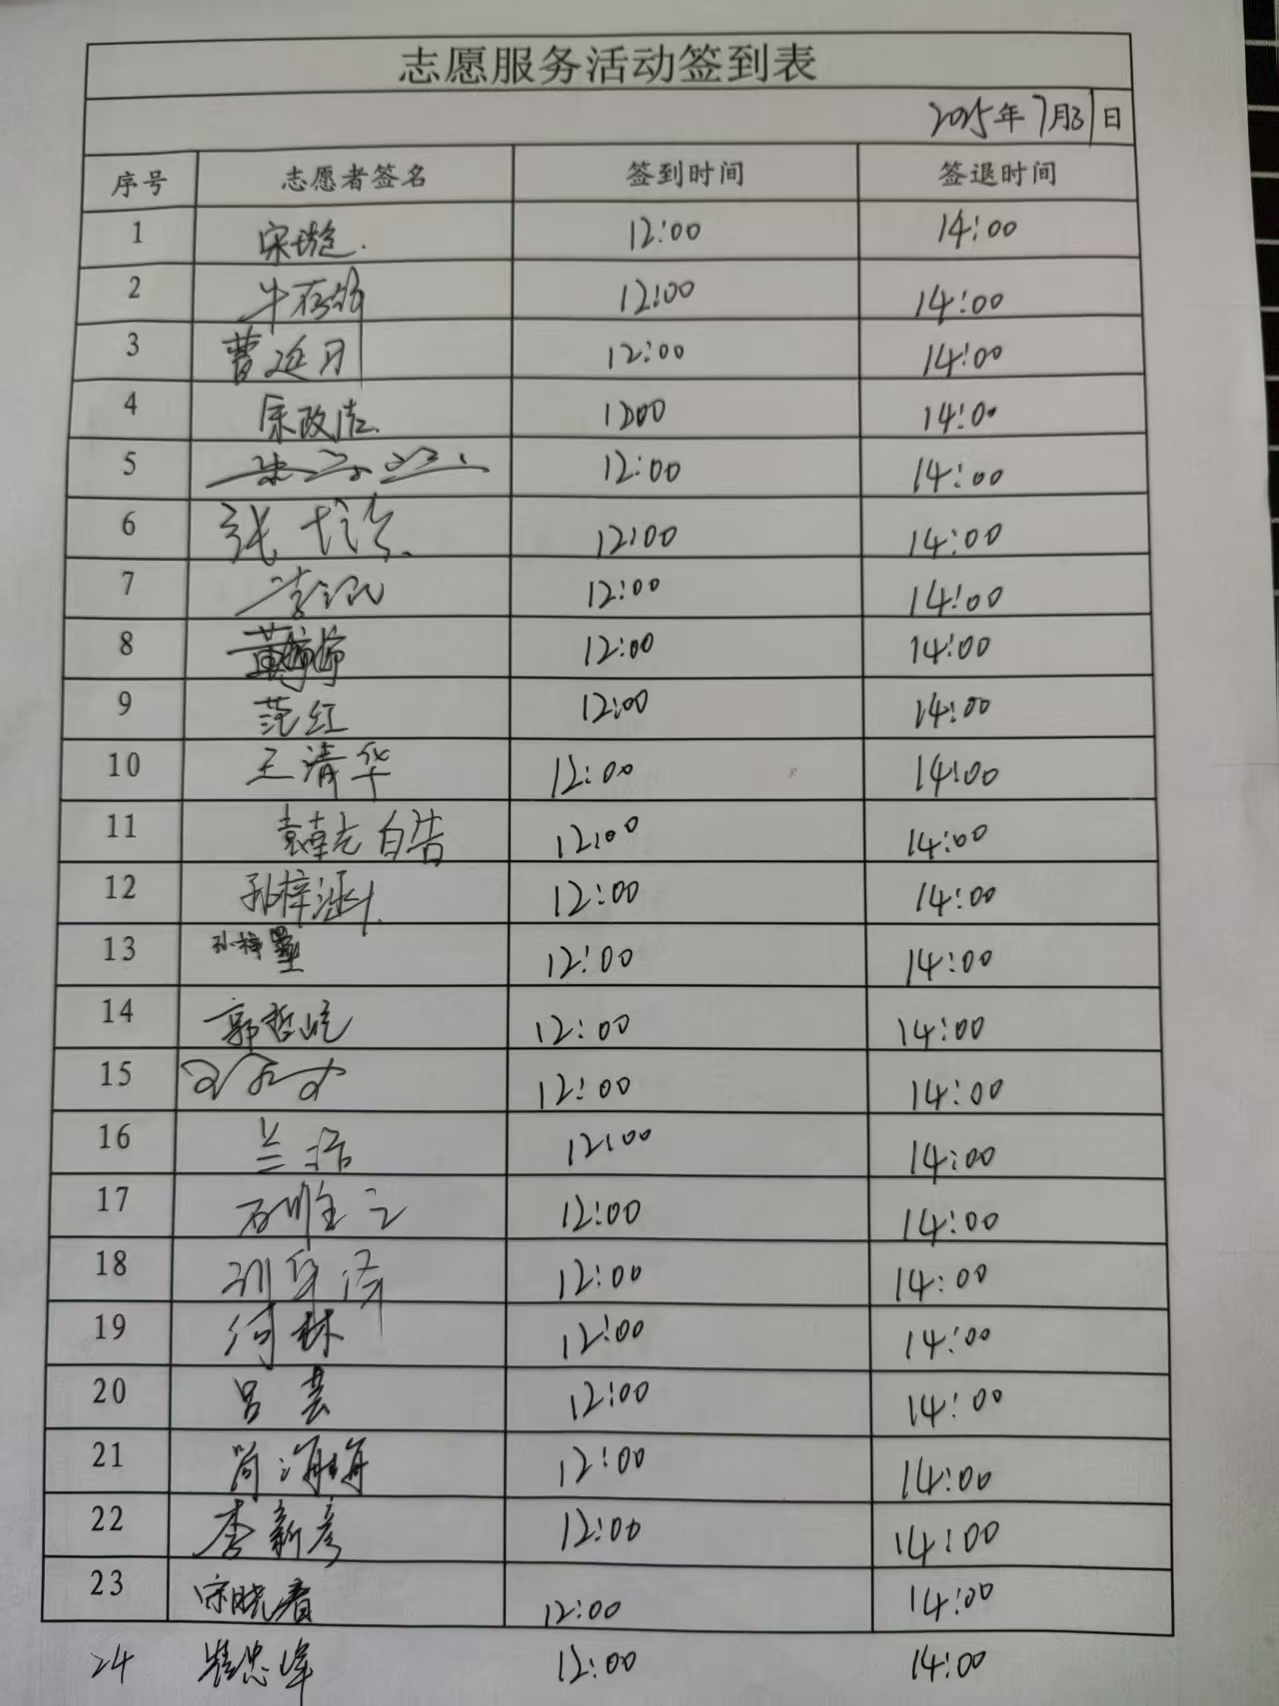 志愿服务活动签到表
2025年7月31日
序号 志愿者签名 签到时间 签退时间
1 宋璇 12:00 14:00
2 12:00 14:00
3 曹延月 12:00 14:00
4 12:00 14:00
5 12:00 14:00
6 张 12:00 14:00
7 李 12:00 14:00
8 黄婷婷 12:00 14:00
9 范红 12:00 14:00
10 王清华 12:00 14:00
11 12:00 14:00
12 孙梓涵 12:00 14:00
13 孙梓墨 12:00 14:00
14 郭哲屹 12:00 14:00
15 12:00 14:00
16 兰洁 12:00 14:00
17 石唯之 12:00 14:00
18 12:00 14:00
19 何林 12:00 14:00
20 吕芸 12:00 14:00
21 简海海 12:00 14:00
22 李新彦 12:00 14:00
23 宋晓春 12:00 14:00
24 12:00 14:00